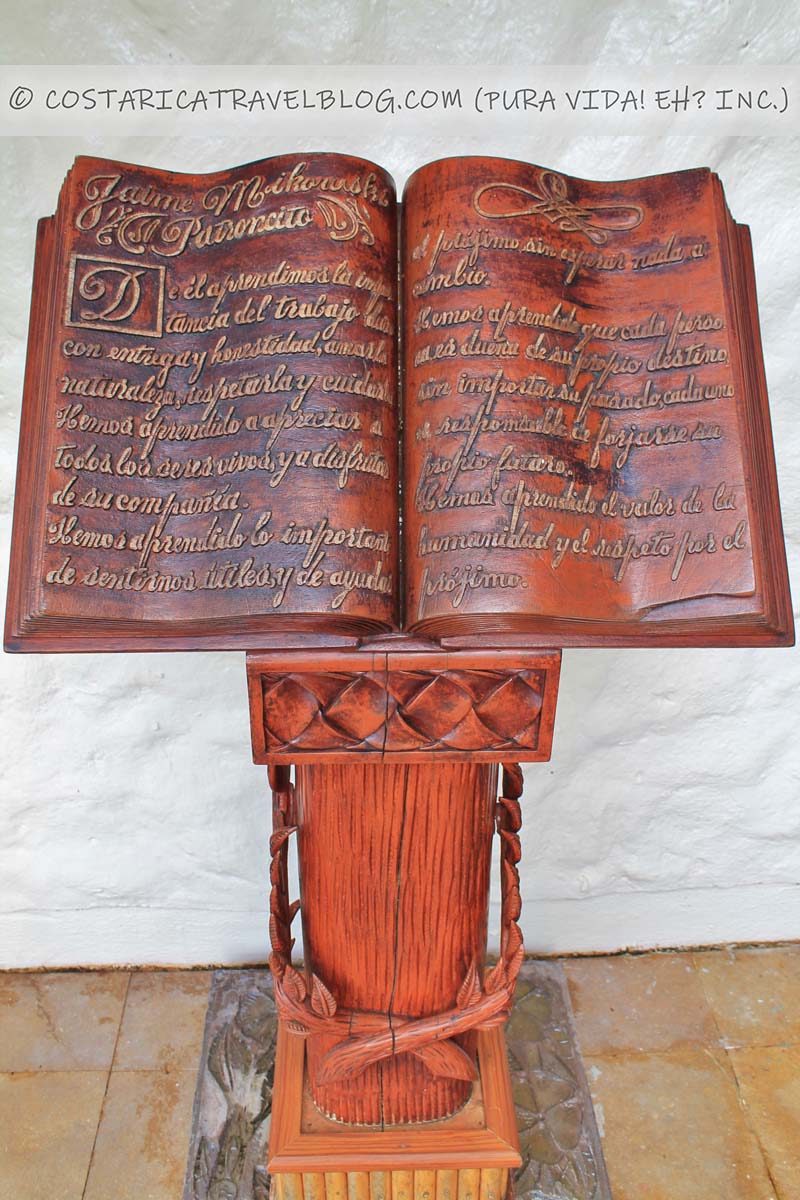 © COSTARICATRAVELBLOG.COM (PURA VIDA! EH? INC.)
Jaime Mikowski
"Patroncito"
De él aprendimos la impor
tancia del trabajo
con entrega y honestidad, amar la
naturaleza, respetarla y cuidarla
Hemos aprendido a apreciar a
todos los seres vivos, y a disfrutar
de su compañía.
Hemos aprendido lo importante
de sentirnos útiles, y de ayudar
al prójimo sin esperar nada a
cambio.
Hemos aprendido que cada perso
na es dueña de su propio destino,
sin importar su pasado, cada uno
es responsable de forjarse su
propio futuro.
Hemos aprendido el valor de la
humanidad y el respeto por el
prójimo.